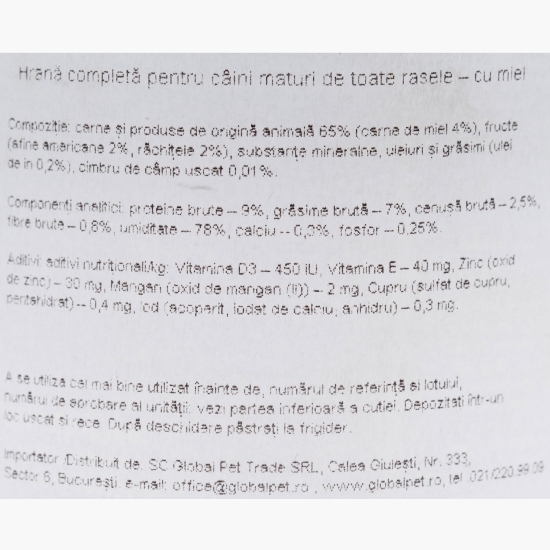 Hrană completă pentru câini maturi de toate rasele – cu miel
Compoziție: carne și produse de origină animală 65% (carne de miel 4%), fructe
(afine americane 2%, răchițele 2%), substanțe minerale, uleiuri și grăsimi (ulei
de in 0,2%), cimbru de câmp uscat 0,01%.
Componenti analitici: proteine brute – 9%, grăsime brută – 7%, cenușă brută – 2,5%,
fibre brute – 0,8%, umiditate – 78%, calciu -- 0,3%, fosfor – 0.25%.
Aditivi: aditivi nutriționali/kg: Vitamina D3 – 450 IU, Vitamina E – 40 mg, Zinc (oxid
de zinc) – 30 mg, Mangan (oxid de mangan (II)) – 2 mg, Cupru (sulfat de cupru,
pentahidrat) -- 0,4 mg, Iod (acoperit, iodat de calciu, anhidru) – 0,3 mg.
A se utiliza cel mai bine utilizat înainte de, numărul de referință al lotului,
numărul de aprobare al unității: vezi partea inferioară a cutiei. Depozitati într-un
loc uscat si rece. După deschidere păstrați la frigider.
Importator /Distribuit de: SC Global Pet Trade SRL, Calea Giulești, Nr. 333,
Sector 6, București. e-mail: office@globalpet.ro , www.globalpet.ro, tel .021/220.99.09